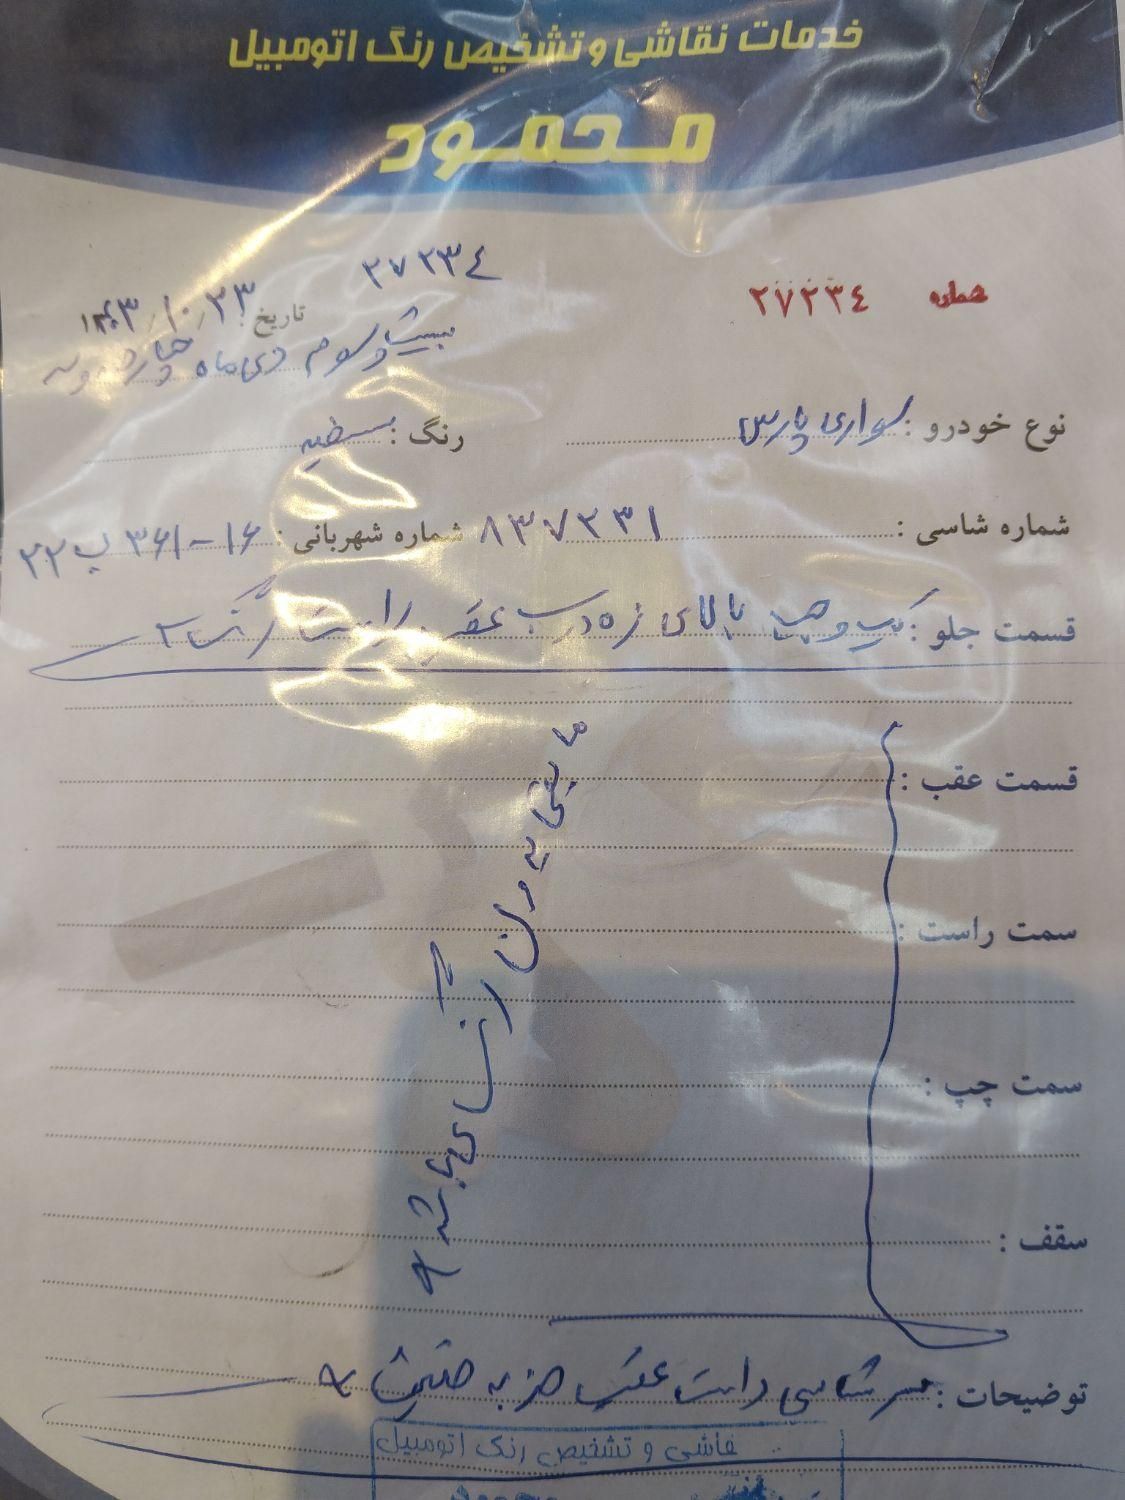 خدمات نقاشی و تشخیص رنگ اتومبیل
محمود
شماره ۲۷۲۳۴
۲۷۲۳۴
تاریخ: ۱۴۰۳/۱۰/۲۳
بیست و سوم دی ماه چهارصد و سه
نوع خودرو: سواری پارس رنگ: سفید
شماره شاسی: ۸۳۷۲۳۱ شماره شهربانی: ۱۶-۳۶۱ ب ۲۲
قسمت جلو: یک وجب بالای زه درب عقب راست رنگ است
قسمت عقب:
سمت راست:
سمت چپ:
سقف:
مابقی بدون رنگ می باشد
توضیحات: سرشاسی راست عقب ضربه خفیف
نقاشی و تشخیص رنگ اتومبیل